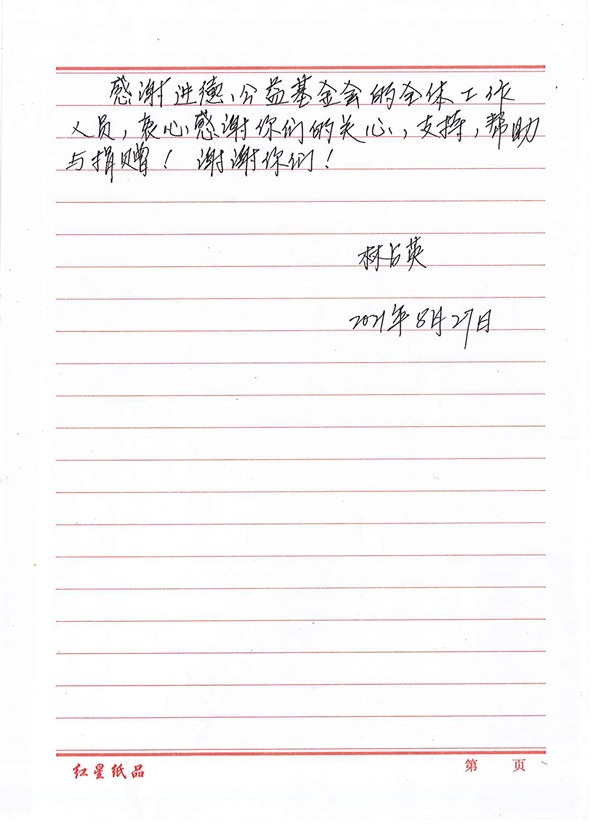 感谢进德公益基金会的全体工作
人员，衷心感谢你们的关心，支持，帮助
与捐赠！谢谢你们！
林占英
2021年8月27日
红星纸品
第 页